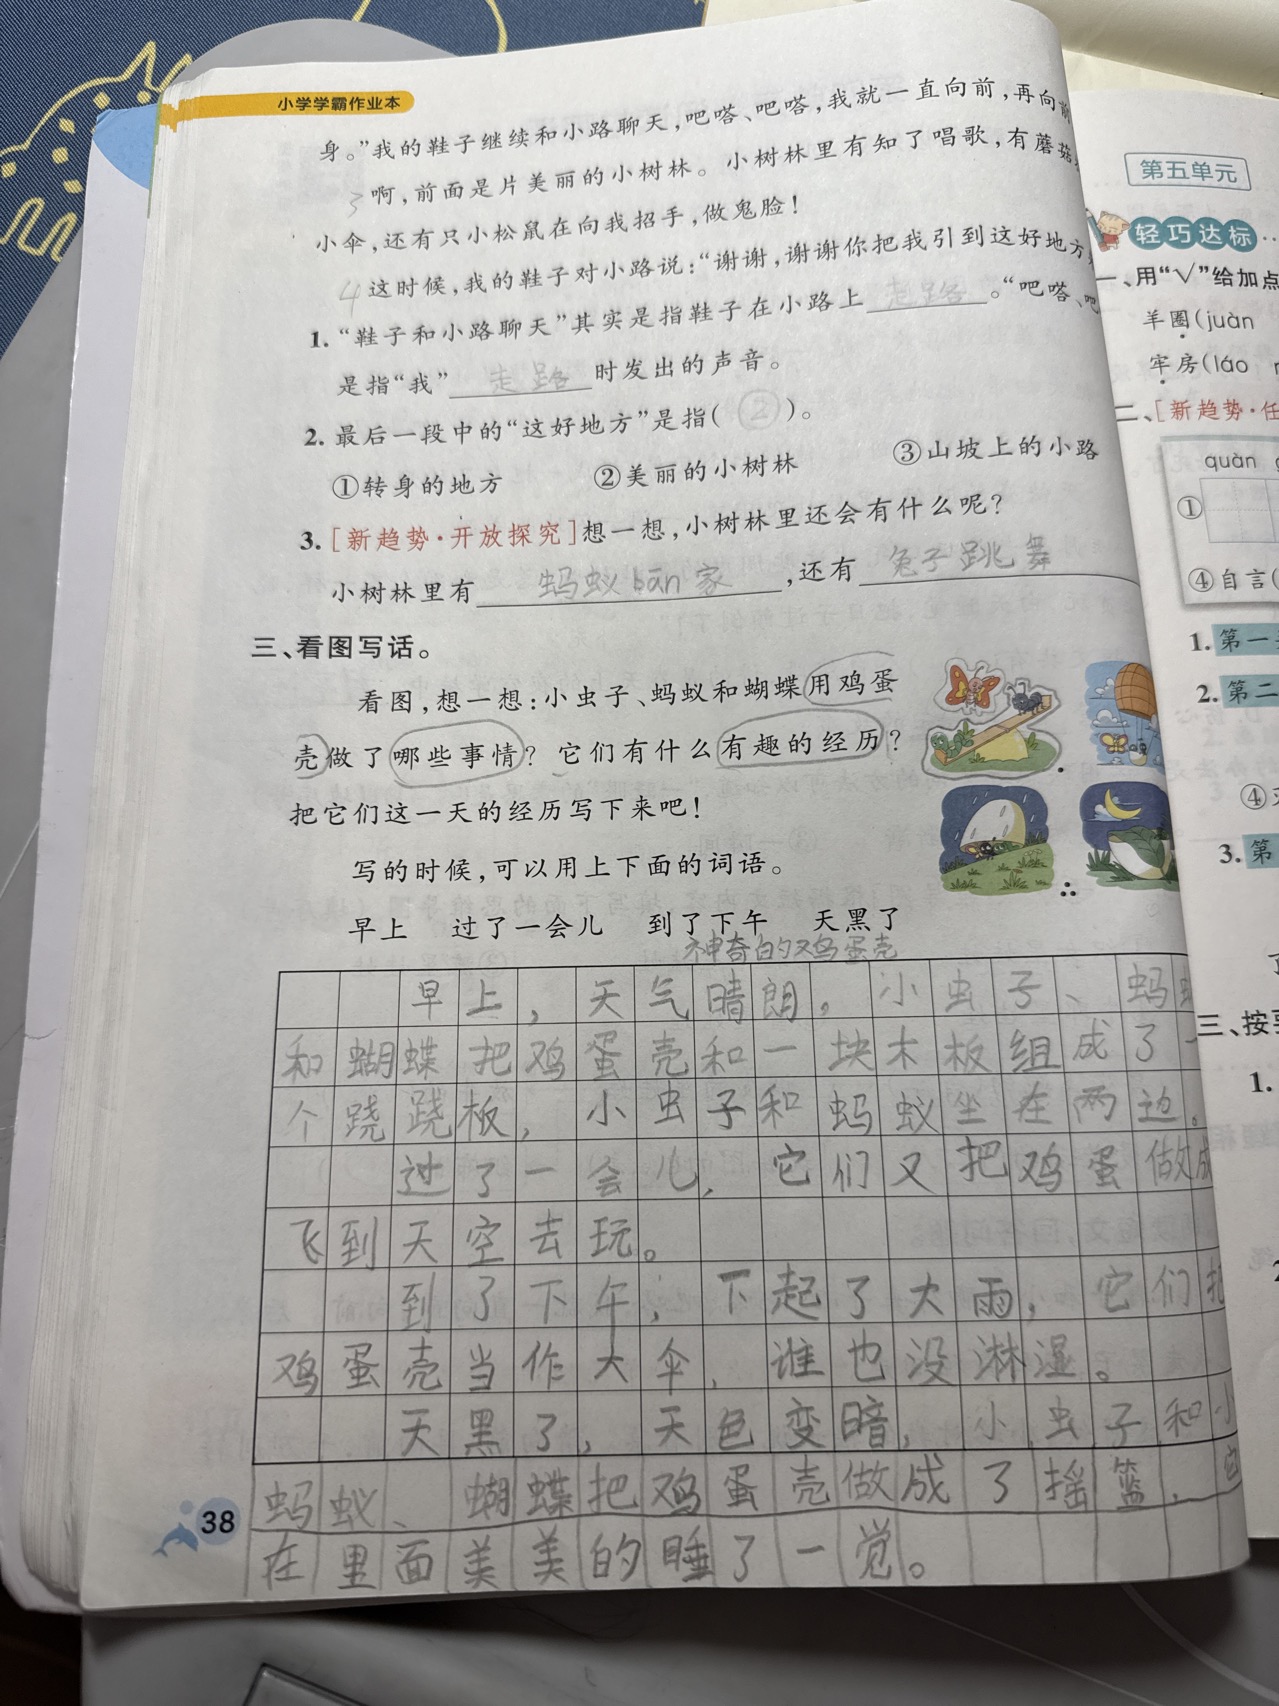 小学学霸作业本
身。”我的鞋子继续和小路聊天，吧嗒、吧嗒，我就一直向前，再向前
3 啊，前面是片美丽的小树林。小树林里有知了唱歌，有蘑菇
小伞，还有只小松鼠在向我招手，做鬼脸！
4 这时候，我的鞋子对小路说：“谢谢，谢谢你把我引到这好地方
1. “鞋子和小路聊天”其实是指鞋子在小路上 走路 。“吧嗒、吧
是指“我” 走路 时发出的声音。
2. 最后一段中的“这好地方”是指（ ② ）。
①转身的地方 ②美丽的小树林 ③山坡上的小路
3. [新趋势·开放探究]想一想，小树林里还会有什么呢？
小树林里有 蚂蚁bān家 ，还有 兔子跳舞
三、看图写话。
看图，想一想：小虫子、蚂蚁和蝴蝶用鸡蛋
壳做了哪些事情？它们有什么有趣的经历？
把它们这一天的经历写下来吧！
写的时候，可以用上下面的词语。
早上 过了一会儿 到了下午 天黑了
神奇的鸡蛋壳
早上，天气晴朗。小虫子、蚂
和蝴蝶把鸡蛋壳和一块木板组成了一
个跷跷板，小虫子和蚂蚁坐在两边。
过了一会儿，它们又把鸡蛋做成
飞到天空去玩。
到了下午，下起了大雨，它们把
鸡蛋壳当作大伞，谁也没淋湿。
天黑了，天色变暗，小虫子和小
蚂蚁、蝴蝶把鸡蛋壳做成了摇篮，它
在里面美美的睡了一觉。
38
第五单元
轻巧达标
一、用“√”给加点
羊圈(juàn
牢房(láo
二、[新趋势·任
quàn
①
④自言(
1. 第一
2. 第二
④
3. 第
三、按要
1.